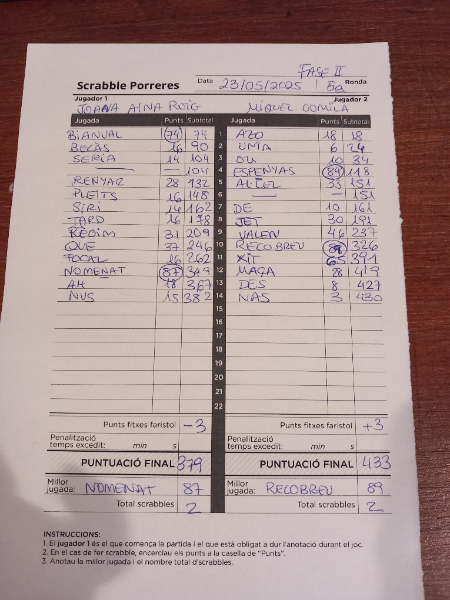 FASE II
Scrabble Porreres Data 23/05/2025 5a Ronda
Jugador 1 Jugador 2
JOANA AINA ROIG MIQUEL GOMILA
Jugada Punts Subtotal Jugada Punts Subtotal
BIANUAL 74 74 1 AZO 18 18
BECÀS 16 90 2 6 24
SERIA 14 104 3 OU 10 34
— — 104 4 ESPENYAS 84 118
RENYAR 28 132 5 33 151
PLEITS 16 148 6 — — 151
SIRI 14 162 7 DE 10 161
TARD 16 178 8 JET 30 191
RÈGIM 31 209 9 VALEN 46 237
QUE 37 246 10 RECOBREU 89 326
FOCAL 16 262 11 XIT 65 391
NOMENAT 87 349 12 MAÇA 28 419
AH 18 367 13 DES 8 427
NUS 15 382 14 NAS 3 430
15
16
17
18
19
20
21
22
Punts fitxes faristol -3 Punts fitxes faristol +3
Penalització temps excedit: min s Penalització temps excedit: min s
PUNTUACIÓ FINAL 379 PUNTUACIÓ FINAL 433
Millor jugada: NOMENAT 87 Millor jugada: RECOBREU 89
Total scrabbles 2 Total scrabbles 2
INSTRUCCIONS:
1. El jugador 1 és el que comença la partida i el que està obligat a dur l'anotació durant el joc.
2. En el cas de fer scrabble, encerclau els punts a la casella de "Punts".
3. Anotau la millor jugada i el nombre total d'scrabbles.